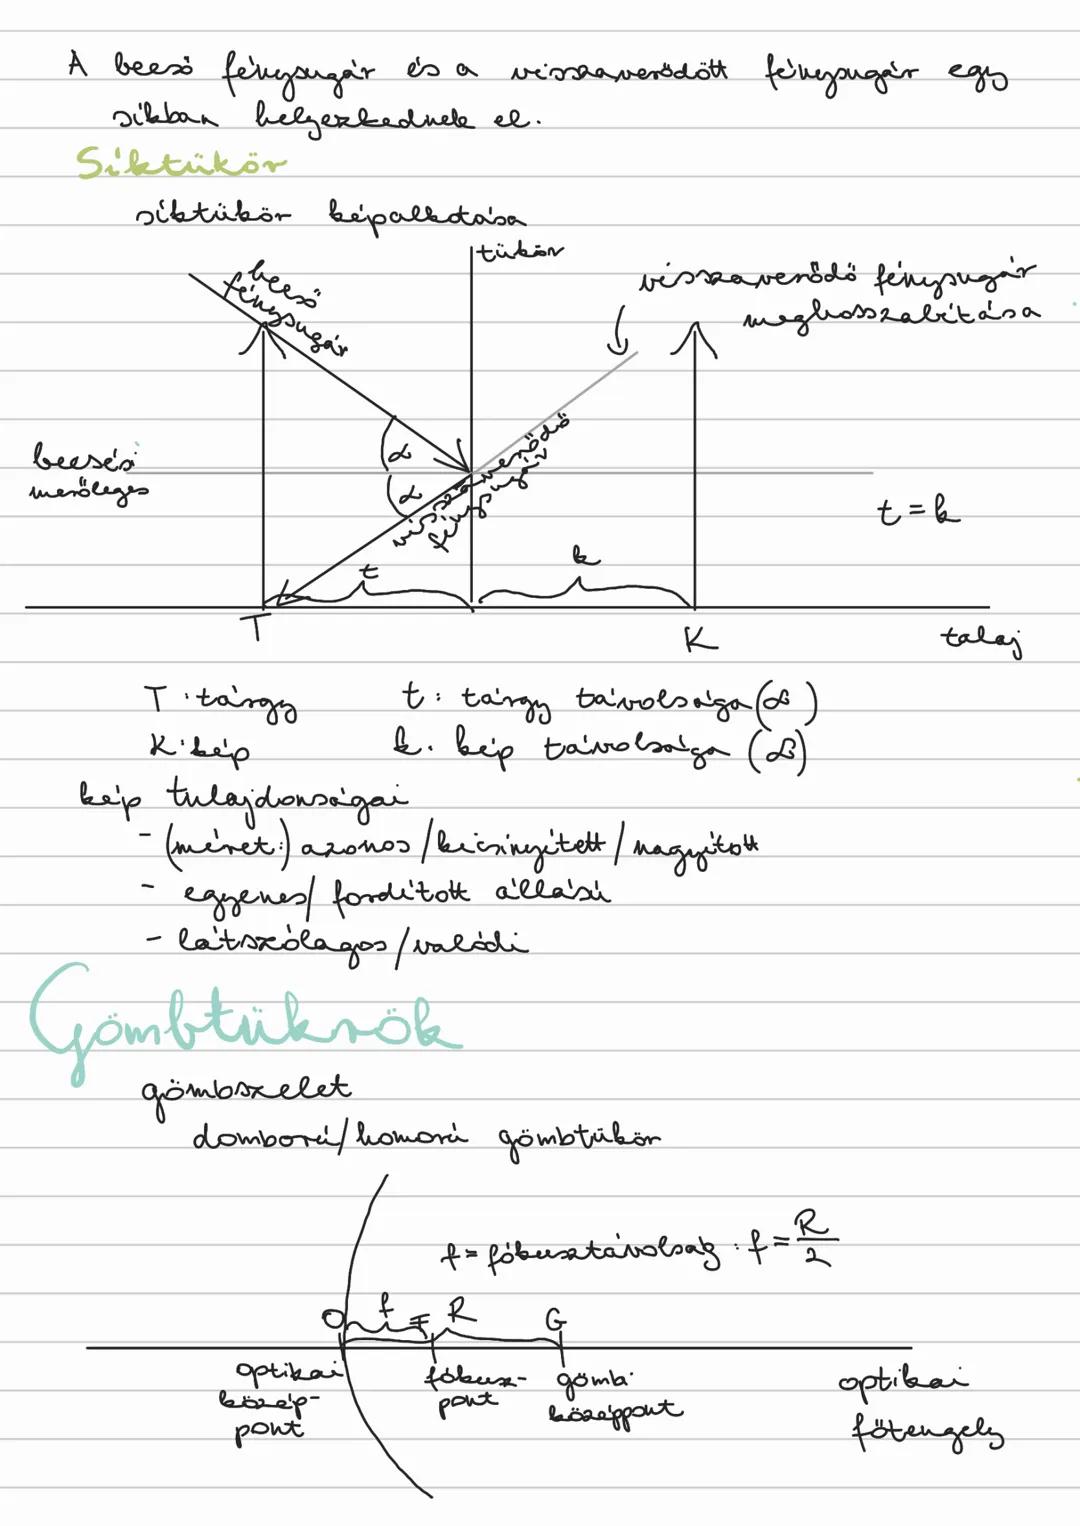 A beeső fénysugár és a visszaverődött fénysugár egy
síkban helyezkednek el.
Síktükör
síktükör képalkotása
tükör
beeső
fénysugár
visszaverődő fénysugár
meghosszabítása
α
α
visszaverődő
fénysugár
beesési
merőleges
t = k
t
k
T
K
talaj
T: tárgy
t: tárgy távolsága
K: kép
k: kép távolsága
kép tulajdonságai
- (méret:) azonos / kicsinyített / nagyított
- egyenes / fordított állású
- látszólagos / valódi
Gömbtükrök
gömbszelet
domború / homorú gömbtükör
f = fókusztávolság : f = R/2
O f F R G
optikai
közép-
pont
fókusz-
pont
gömbi
középpont
optikai
főtengely